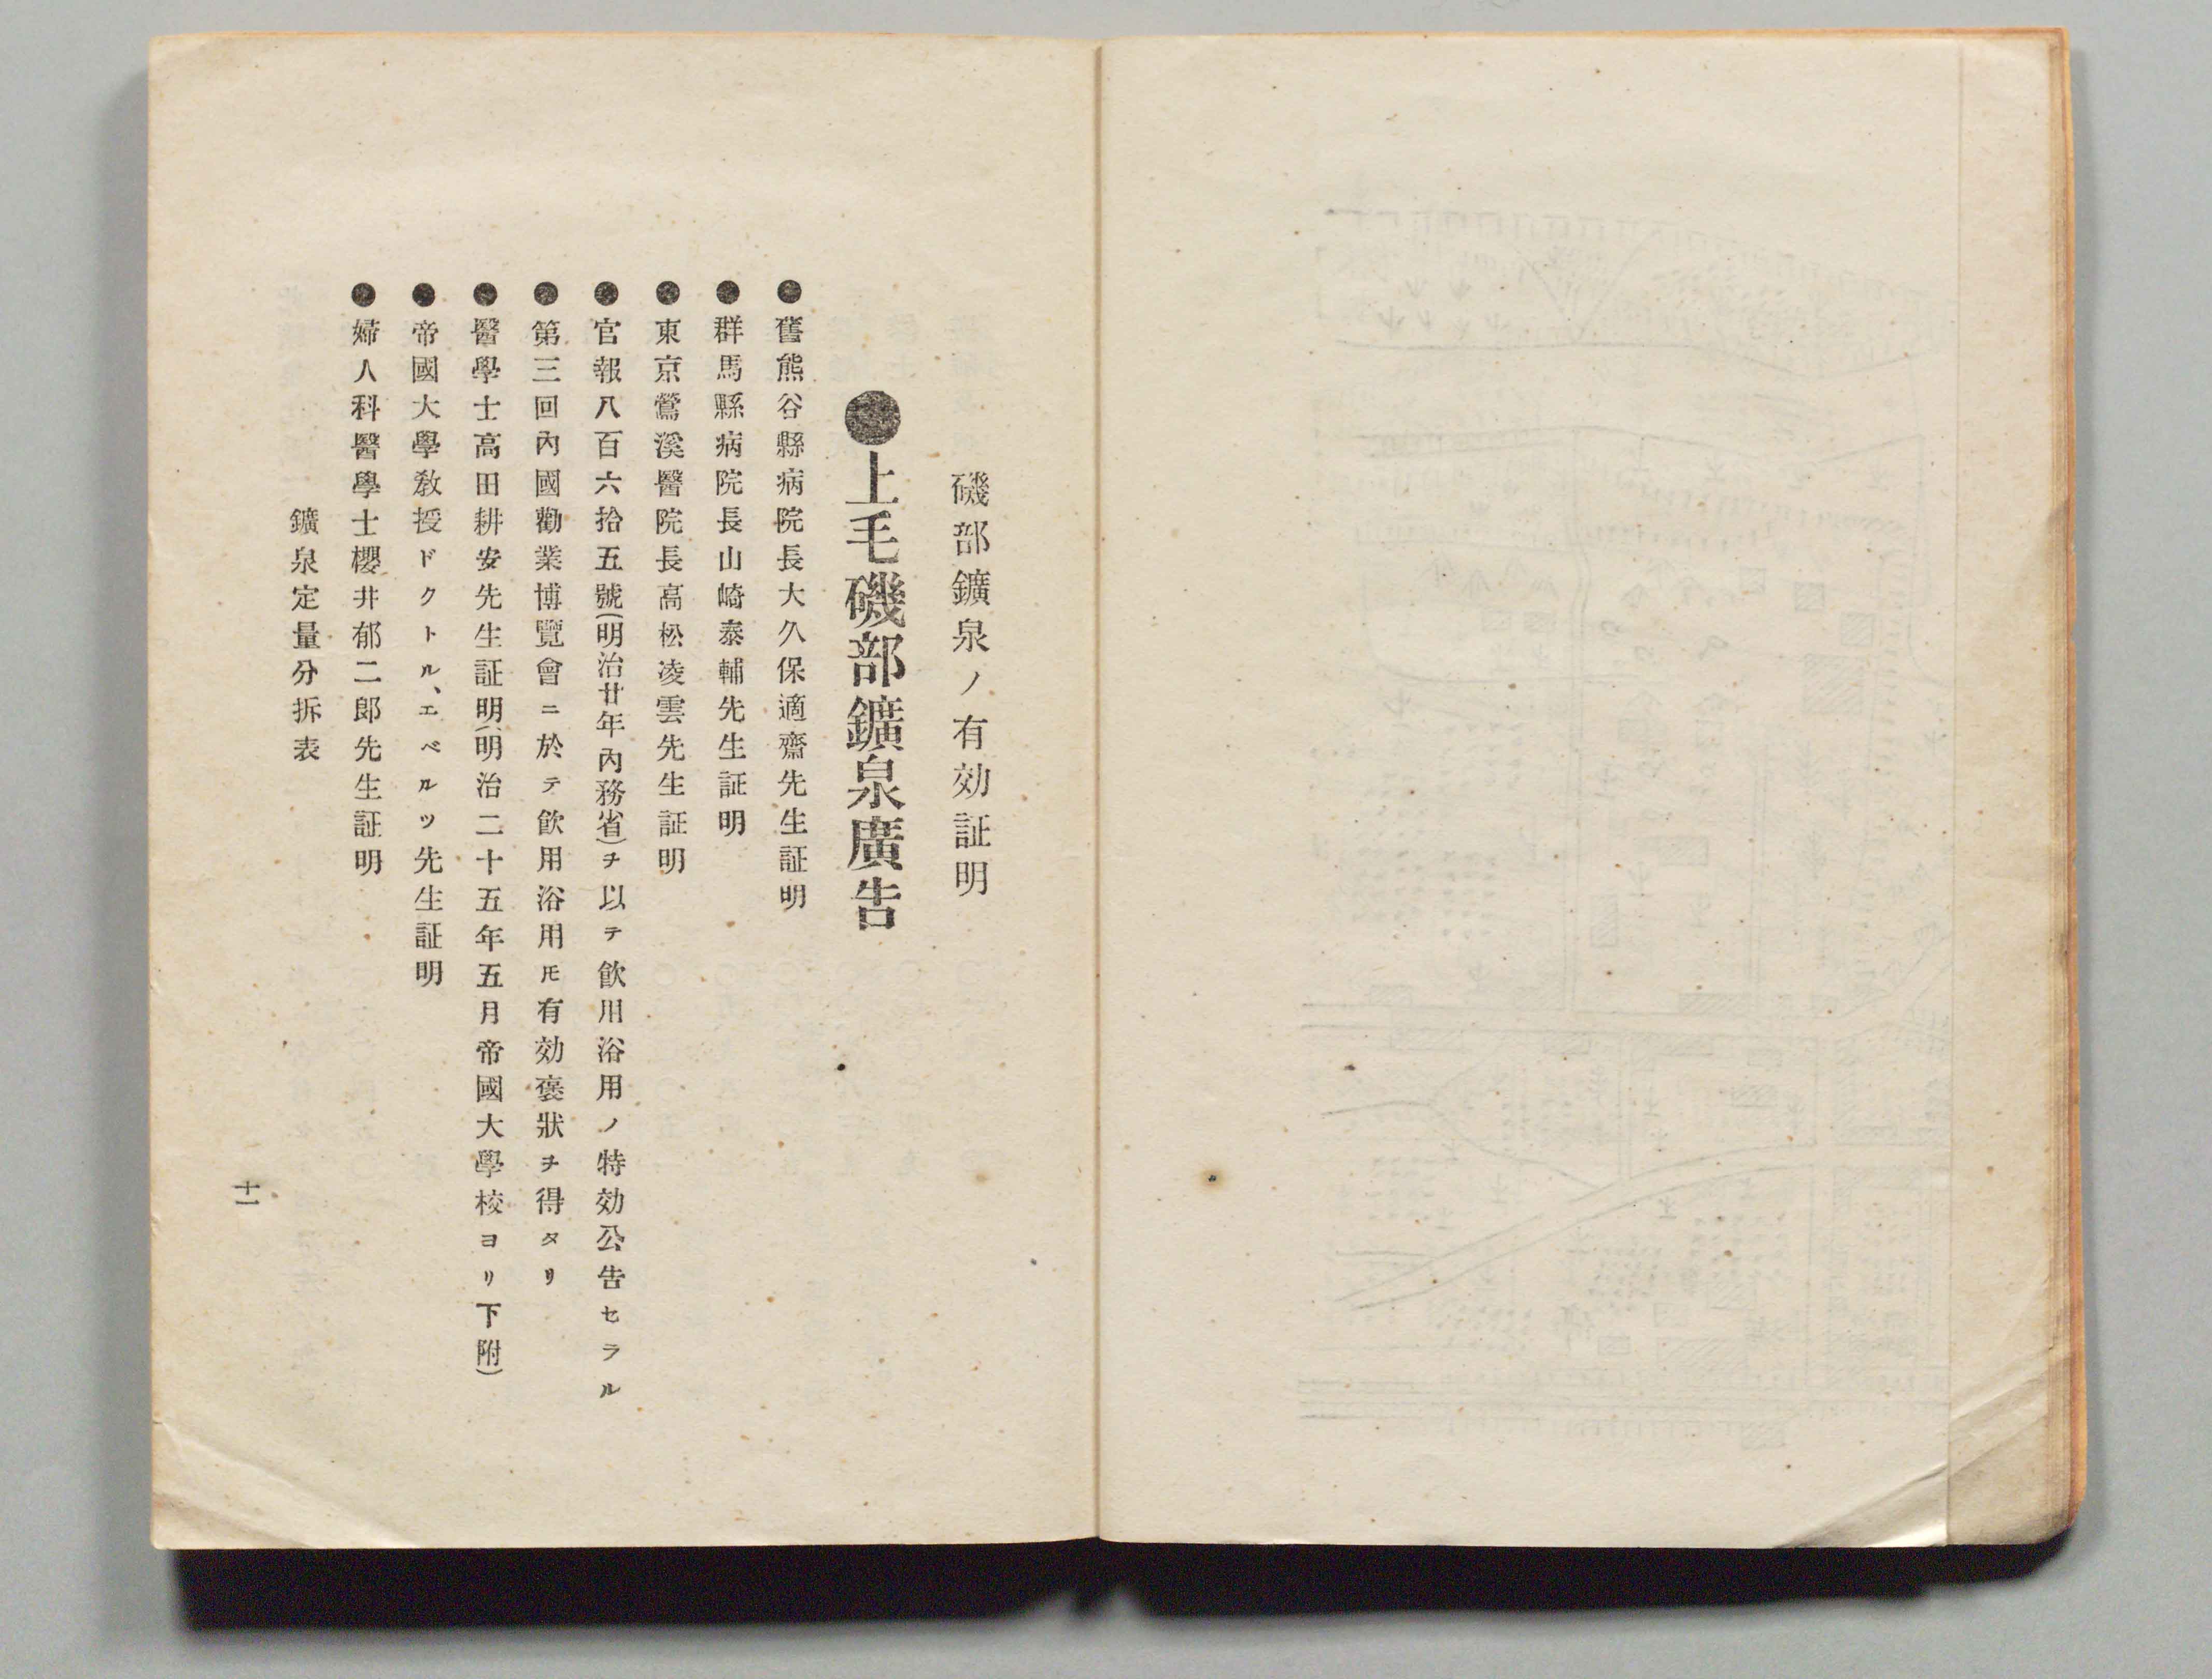 磯部鑛泉ノ有効証明
●上毛磯部鑛泉廣告
●舊熊谷縣病院長大久保適齋先生証明
●群馬縣病院長山崎泰輔先生証明
●東京鶯溪醫院長高松凌雲先生証明
●官報八百六拾五號(明治廿年內務省)ヲ以テ飮用浴用ノ特効公告セラル
●第三回內國勸業博覽會ニ於テ飮用浴用𪜈有効褒狀ヲ得タリ
●醫學士高田耕安先生証明(明治二十五年五月帝國大學校ヨリ下附)
●帝國大學敎授ドクトル、エベルツ先生証明
●婦人科醫學士櫻井郁二郎先生証明
鑛泉定量分拆表
十一